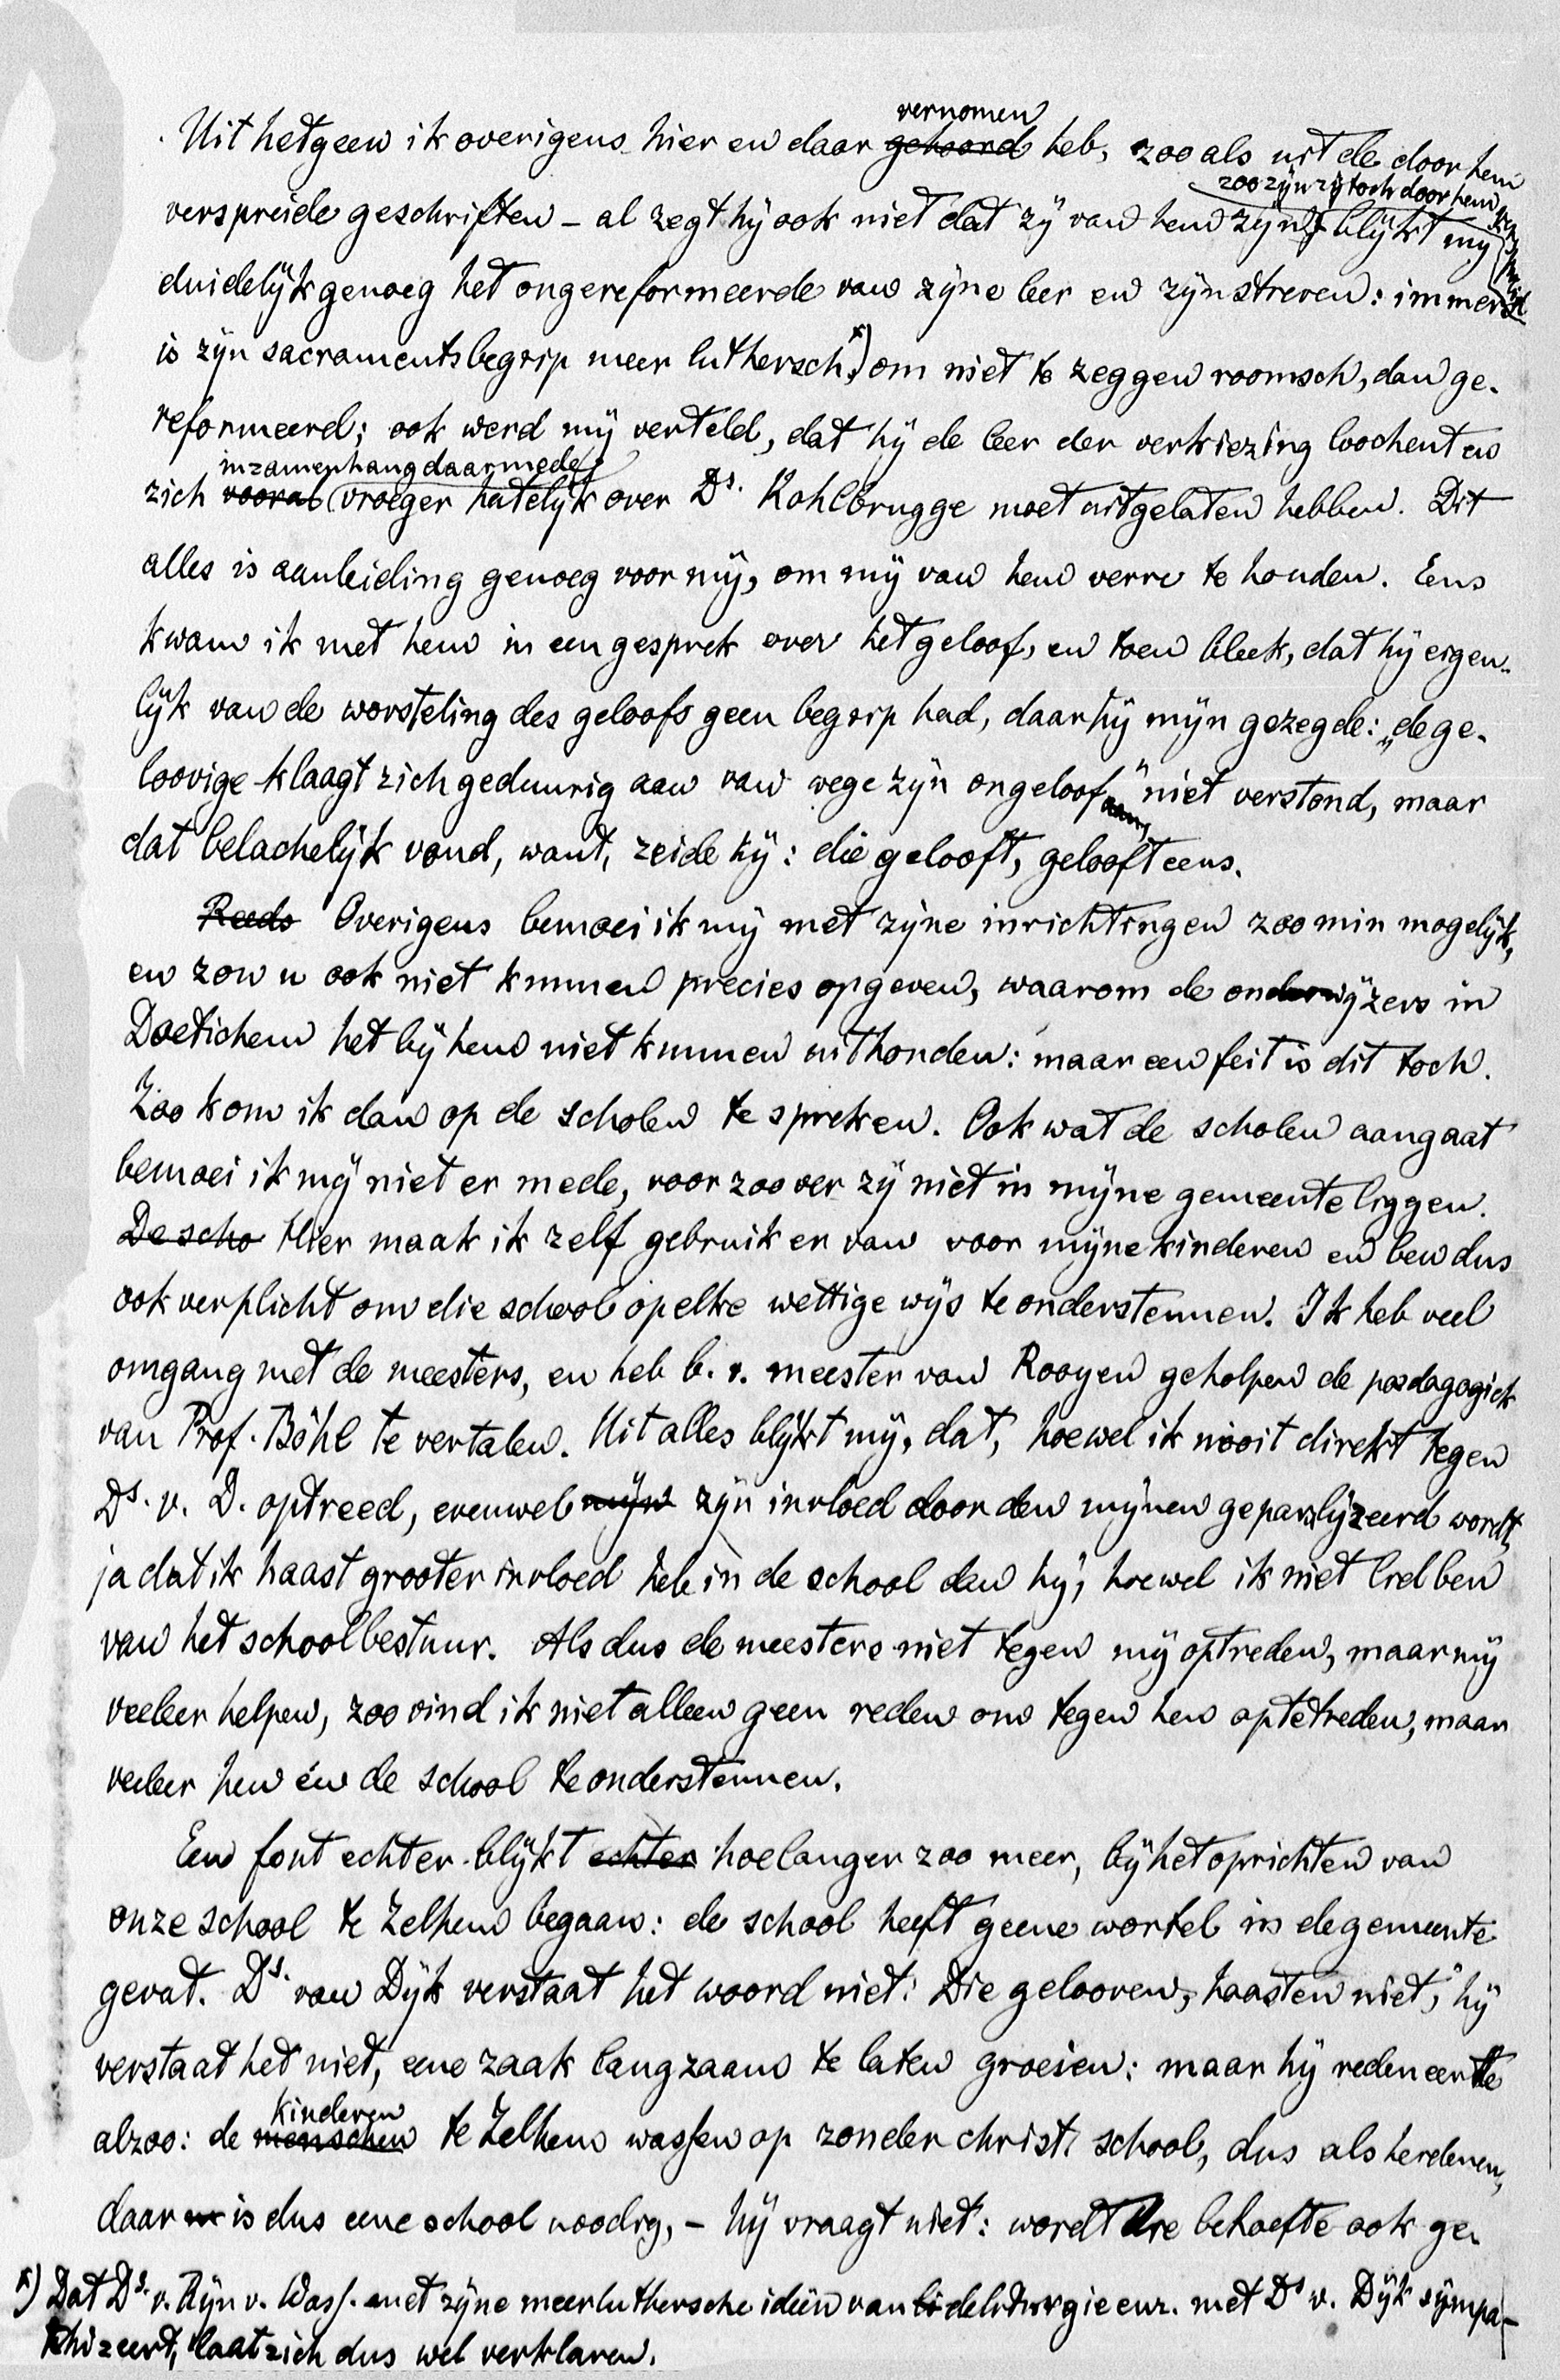 vernomen
Uit hetgeen ik overigens hier en daar gehoord heb, zooals uit de door hem
zoo zijn zij toch door hem verspreid
verspreide geschriften – al zegt hij ook niet dat zij van hem zijn, blijkt mij
duidelijk genoeg het ongereformeerde van zijne leer en zijn streven: immers
is zijn sacramentsbegrip meer luthersch,*) om niet te zeggen roomsch, dan ge-
reformeerd; ook werd mij verteld, dat hij de leer der verkiezing loochent en
in zamenhang daarmede
zich vooral vroeger hatelijk over Ds. Kohlbrugge moet uitgelaten hebben. Dit
alles is aanleiding genoeg voor mij, om mij van hem verre te houden. Eens
kwam ik met hem in een gesprek over het geloof, en toen bleek, dat hij eigen-
lijk van de worsteling des geloofs geen begrip had, daar hij mijn gezegde: „de ge-
loovige klaagt zich gedurig aan van wege zijn ongeloof" niet verstond, maar
dat belachelijk vond, want, zeide hij: die gelooft, gelooft eens.
Reeds Overigens bemoei ik mij met zijne inrichtingen zoo min mogelijk,
en zou u ook niet kunnen precies opgeven, waarom de onderwijzers in
Doetichem het bij hem niet kunnen uithouden: maar een feit is dit toch.
Zoo kom ik dan op de scholen te spreken. Ook wat de scholen aangaat
bemoei ik mij niet er mede, voor zoover zij niet in mijne gemeente liggen.
De scho Hier maak ik zelf gebruik er van voor mijne kinderen en ben dus
ook verplicht om die school op elke wettige wijs te ondersteunen. Ik heb veel
omgang met de meesters, en heb b.v. meester van Rooyen geholpen de paedagogick
van Prof. Böhl te vertalen. Uit alles blijkt mij, dat, hoewel ik nooit direkt tegen
Ds. v. D. optreed, evenwel mijn zijn invloed door den mijnen geparalijzeerd wordt,
ja dat ik haast grooter invloed heb in de school dan hij, hoewel ik niet lid ben
van het schoolbestuur. Als dus de meesters niet tegen mij optreden, maar mij
veeleer helpen, zoo vind ik niet alleen geen reden om tegen hen optetreden, maar
veeleer hen én de school te ondersteunen.
Een fout echter blijkt echter hoelanger zoo meer, bij het oprichten van
onze school te Zelhem begaan: de school heeft geene wortel in de gemeente
gevat. Ds. van Dijk verstaat het woord niet: Die gelooven, haasten niet," hij
verstaat het niet, eene zaak langzaam te laten groeien: maar hij redeneerde
kinderen
alzoo: de menschen te Zelhem wassen op zonder christ. school, dus als heidenen,
daar is dus eene school noodig, – hij vraagt niet: wordt die behoefte ook ge-
*) Dat Ds. v. Rijn v. Wass. met zijne meer luthersche ideën van de liturgie enz. met Ds v. Dijk sympa-
thizeert, laat zich dus wel verklaren.